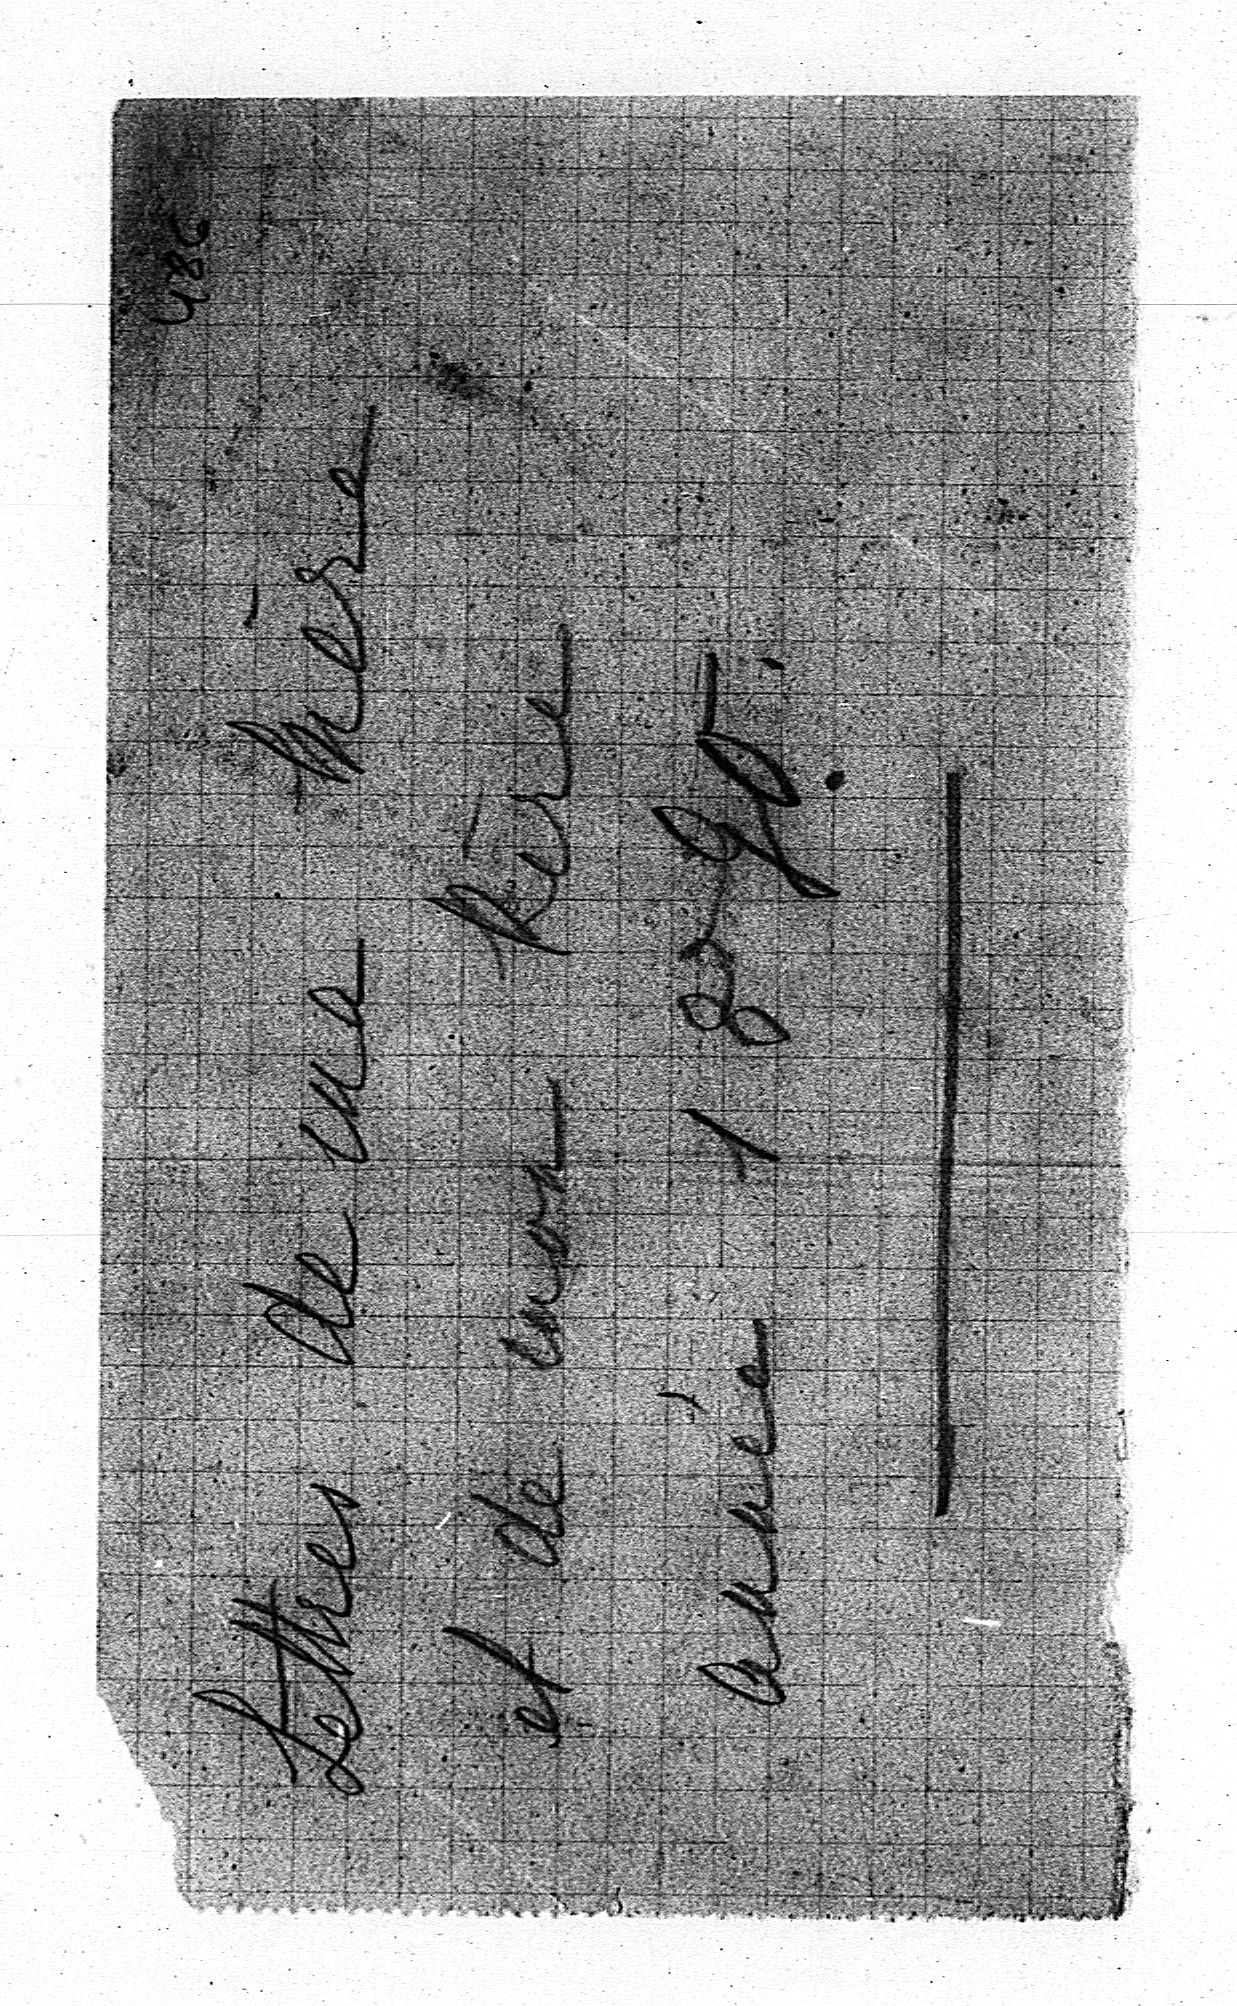 486
Lettres de ma mère
et de mon Père
année